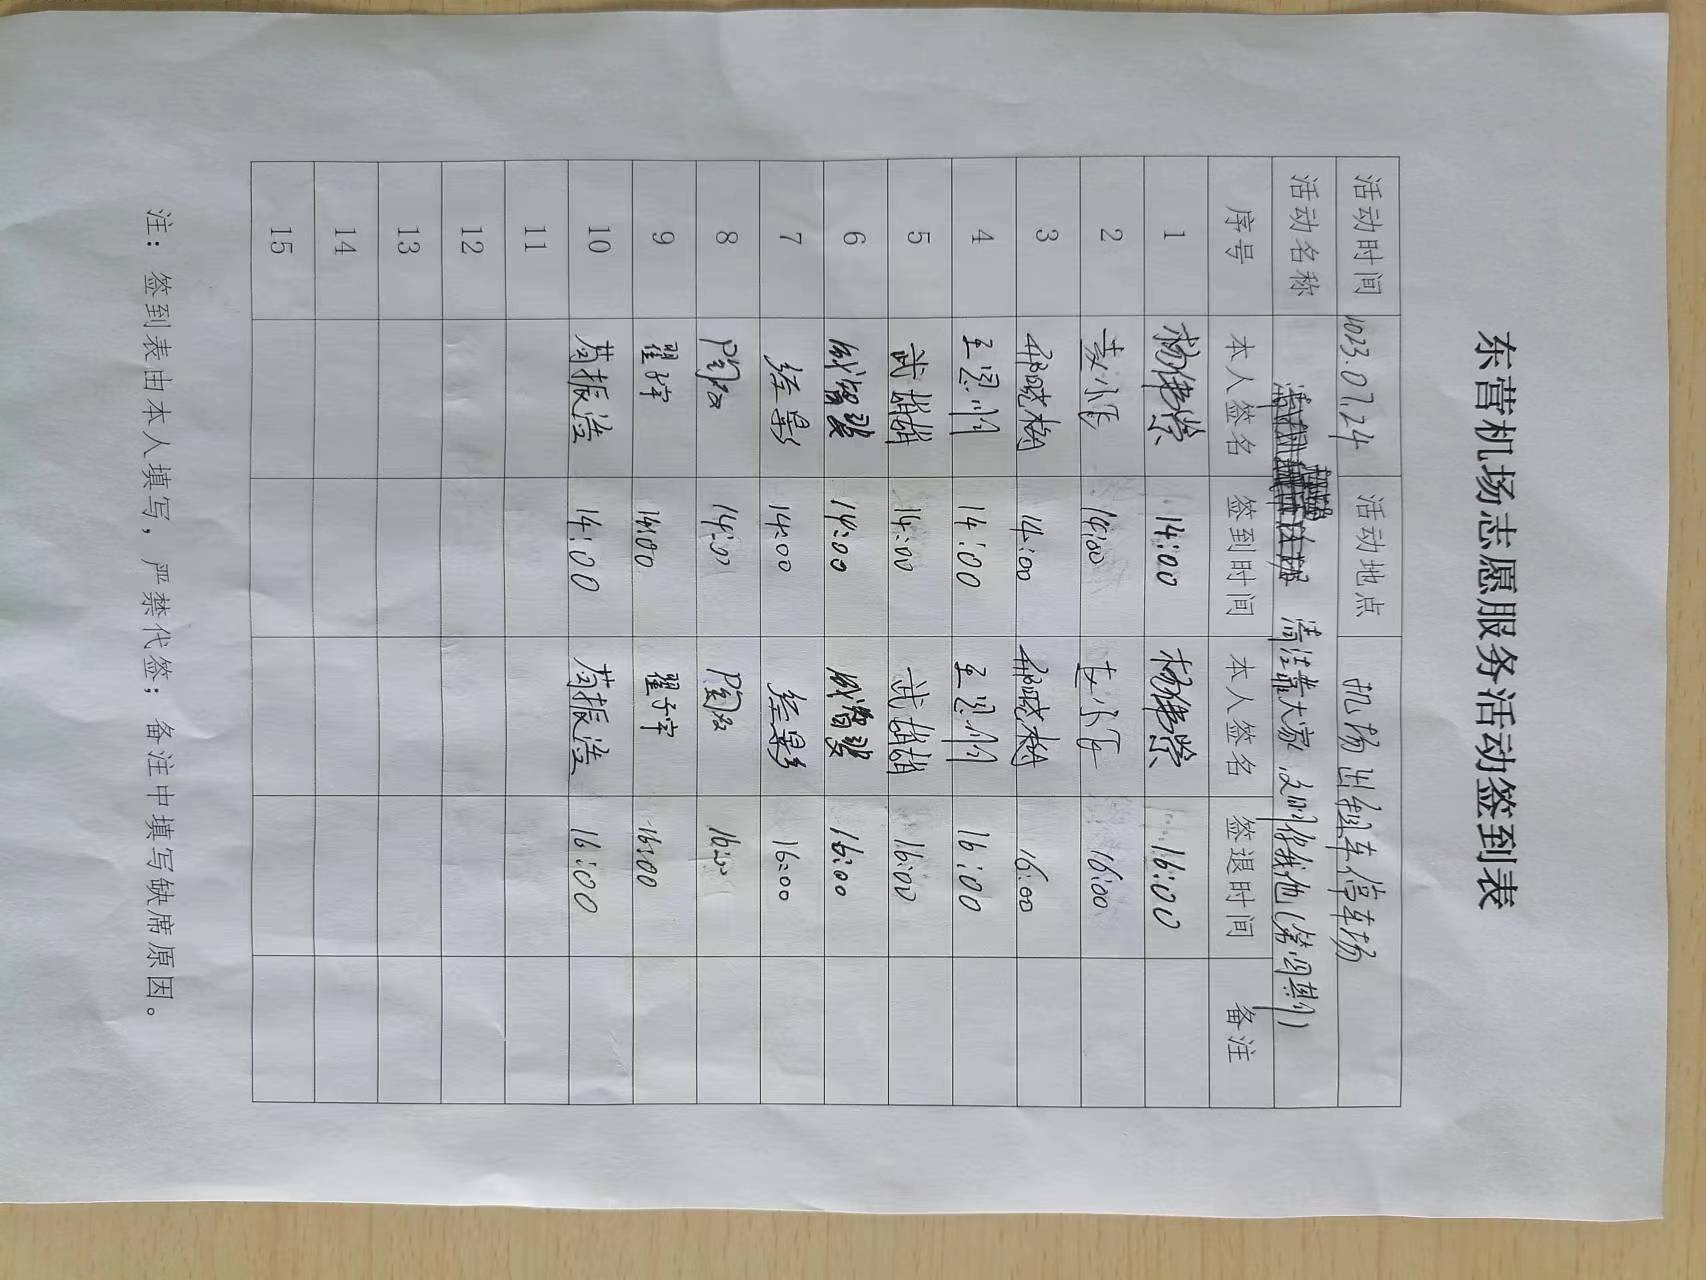 东营机场志愿服务活动签到表
活动时间 2023.07.24 活动地点 机场出租车停车场
活动名称 清洁靠大家,文明你我他(第四期)
序号 本人签名 签到时间 本人签名 签退时间 备注
1 杨继荣 14:00 杨继荣 16:00
2 14:00 16:00
3 郝晓梅 14:00 郝晓梅 16:00
4 14:00 16:00
5 武喆喆 14:00 武喆喆 16:00
6 14:00 16:00
7 14:00 16:00
8 14:00 16:00
9 翟子宇 14:00 翟子宇 16:00
10 14:00 16:00
11
12
13
14
15
注:签到表由本人填写,严禁代签;备注中填写缺席原因。